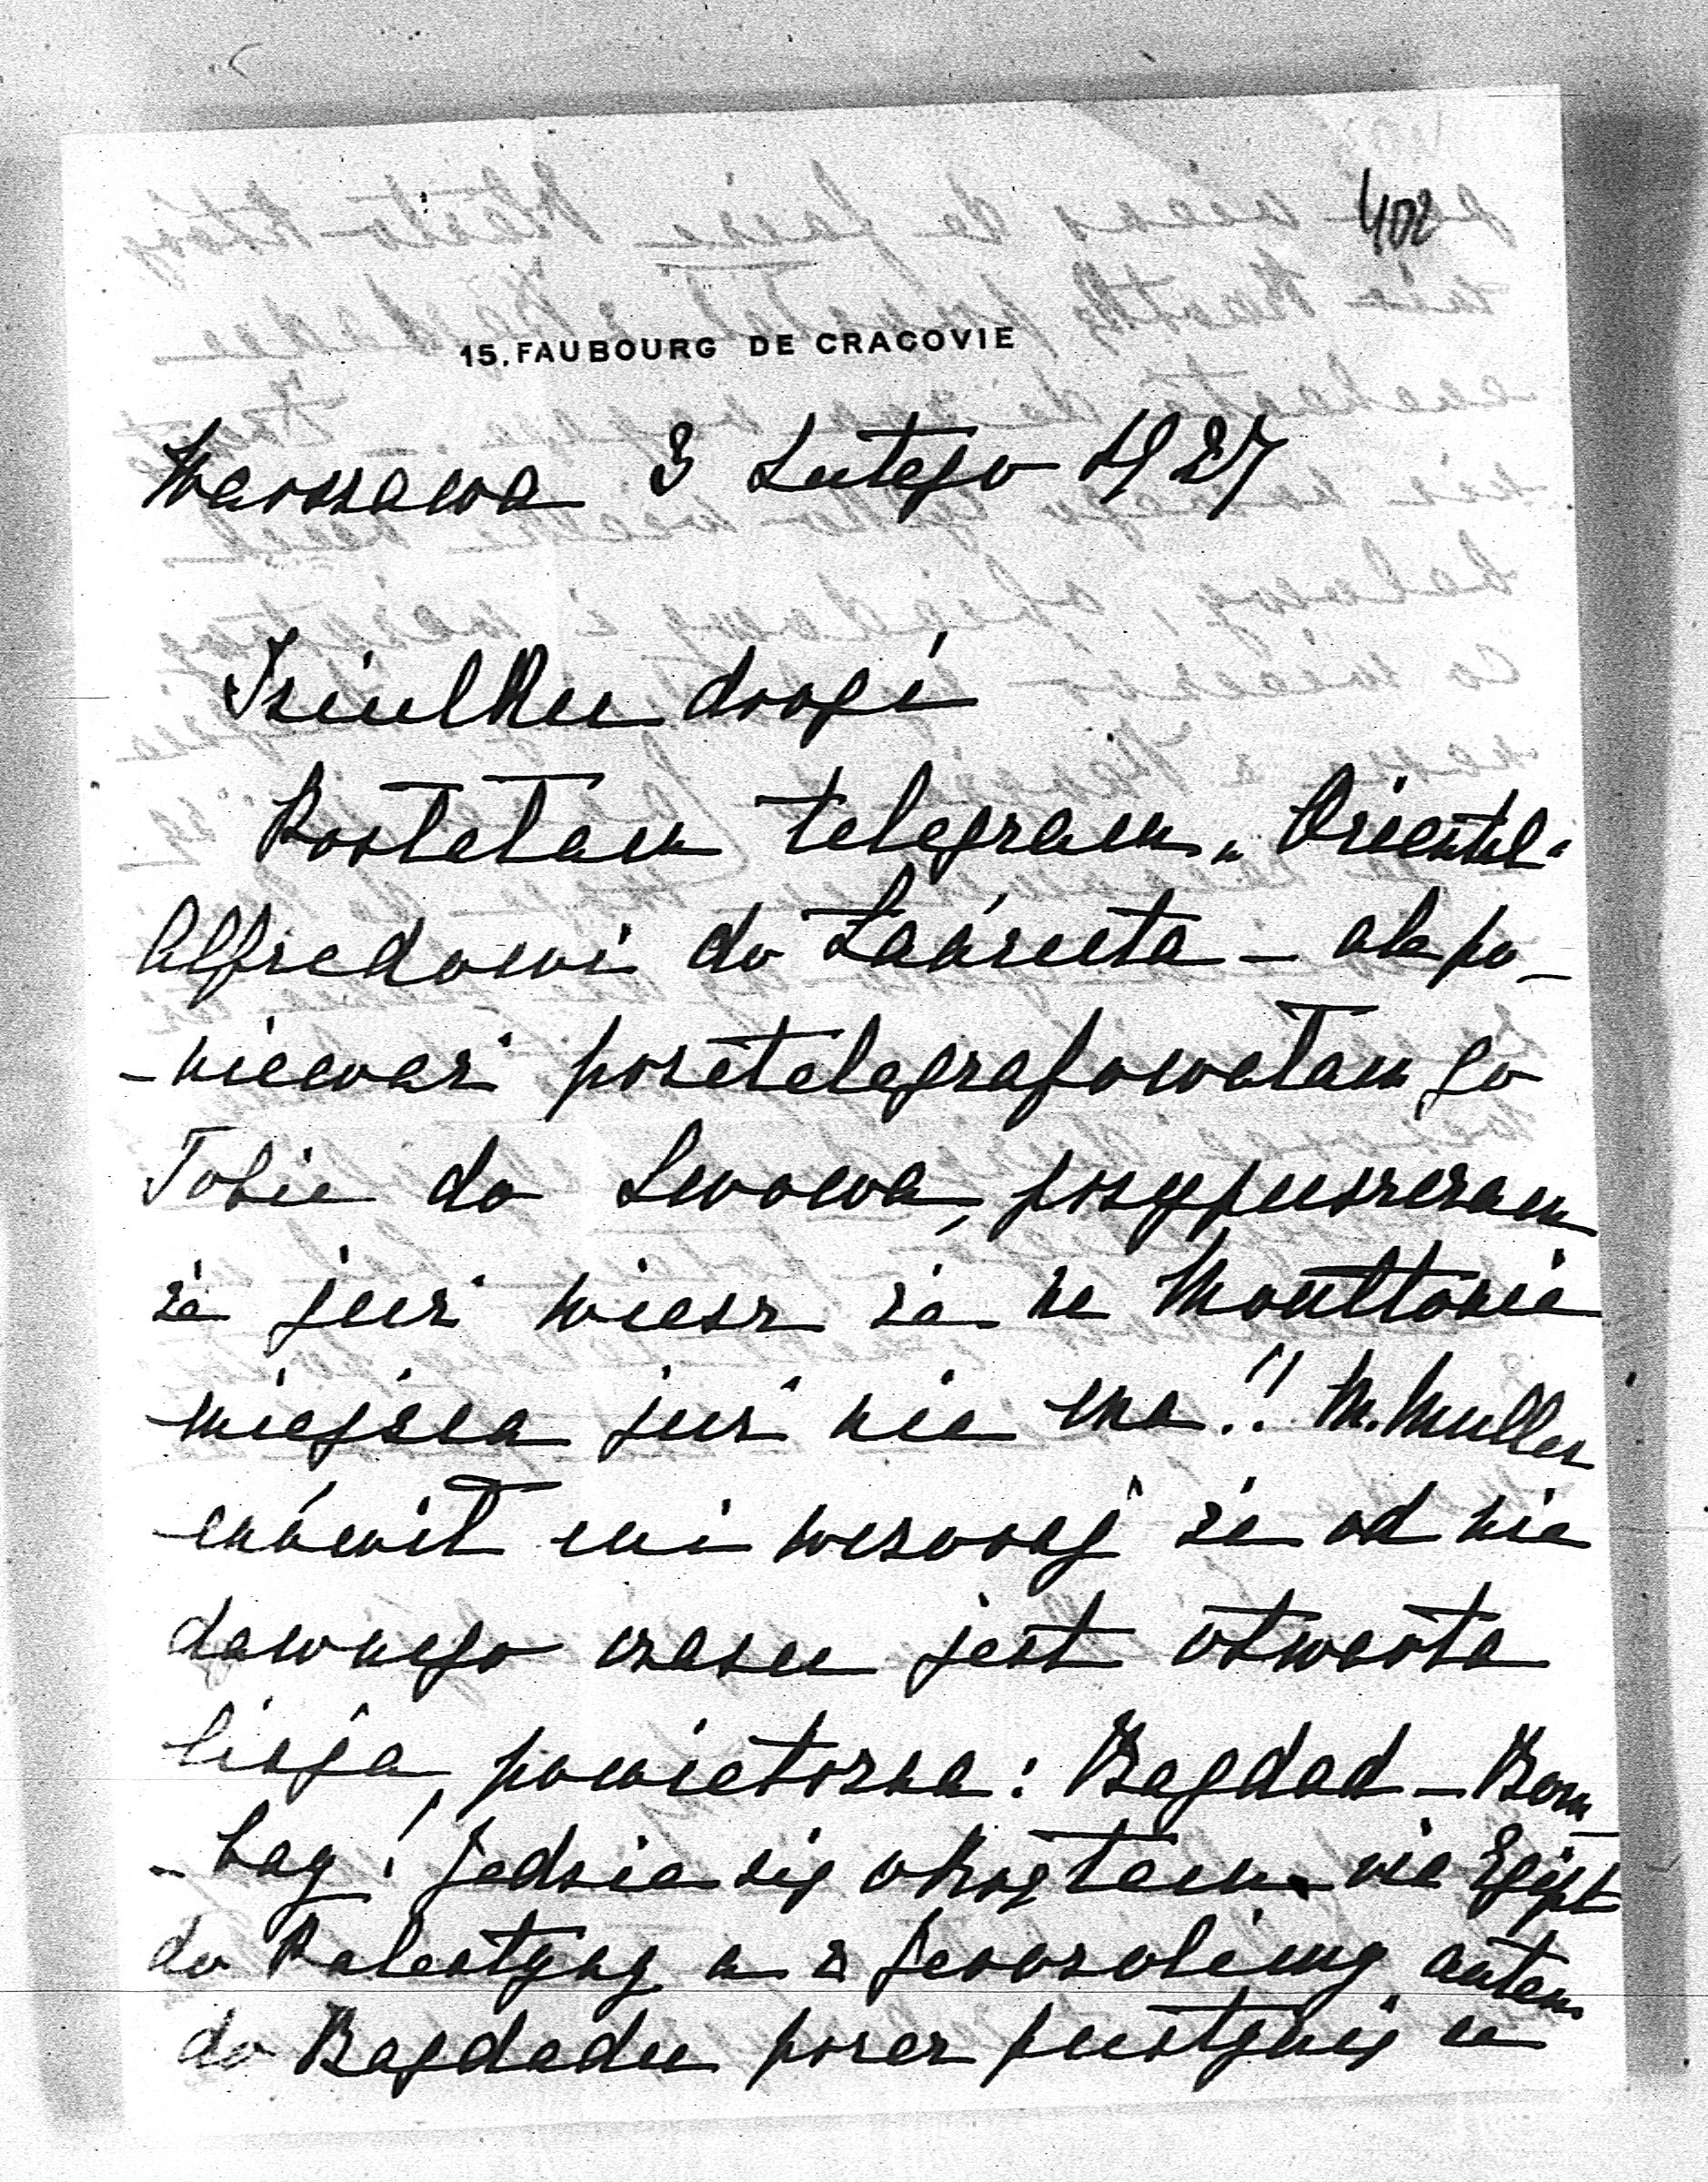 402
15, FAUBOURG DE CRACOVIE
Warszawa 3 Lutego 1927
drogi
Posłałam telegram „Orientel"
Alfredowi do Łańcuta – ale po-
-nieważ przetelegrafowałam go
Tobie do Lwowa, przypuszczam
że już wiesz że na Moultonie
miejsca już nie ma!! M. Muller
mówił mi wczoraj że od nie
dawnego czasu jest otwarta
linja powietrzna: Bagdad – Bom
-bay! Jedzie się okrętem via Egipt
do Palestyny a z Jerozolimy autem
do Bagdadu przez pustynię a